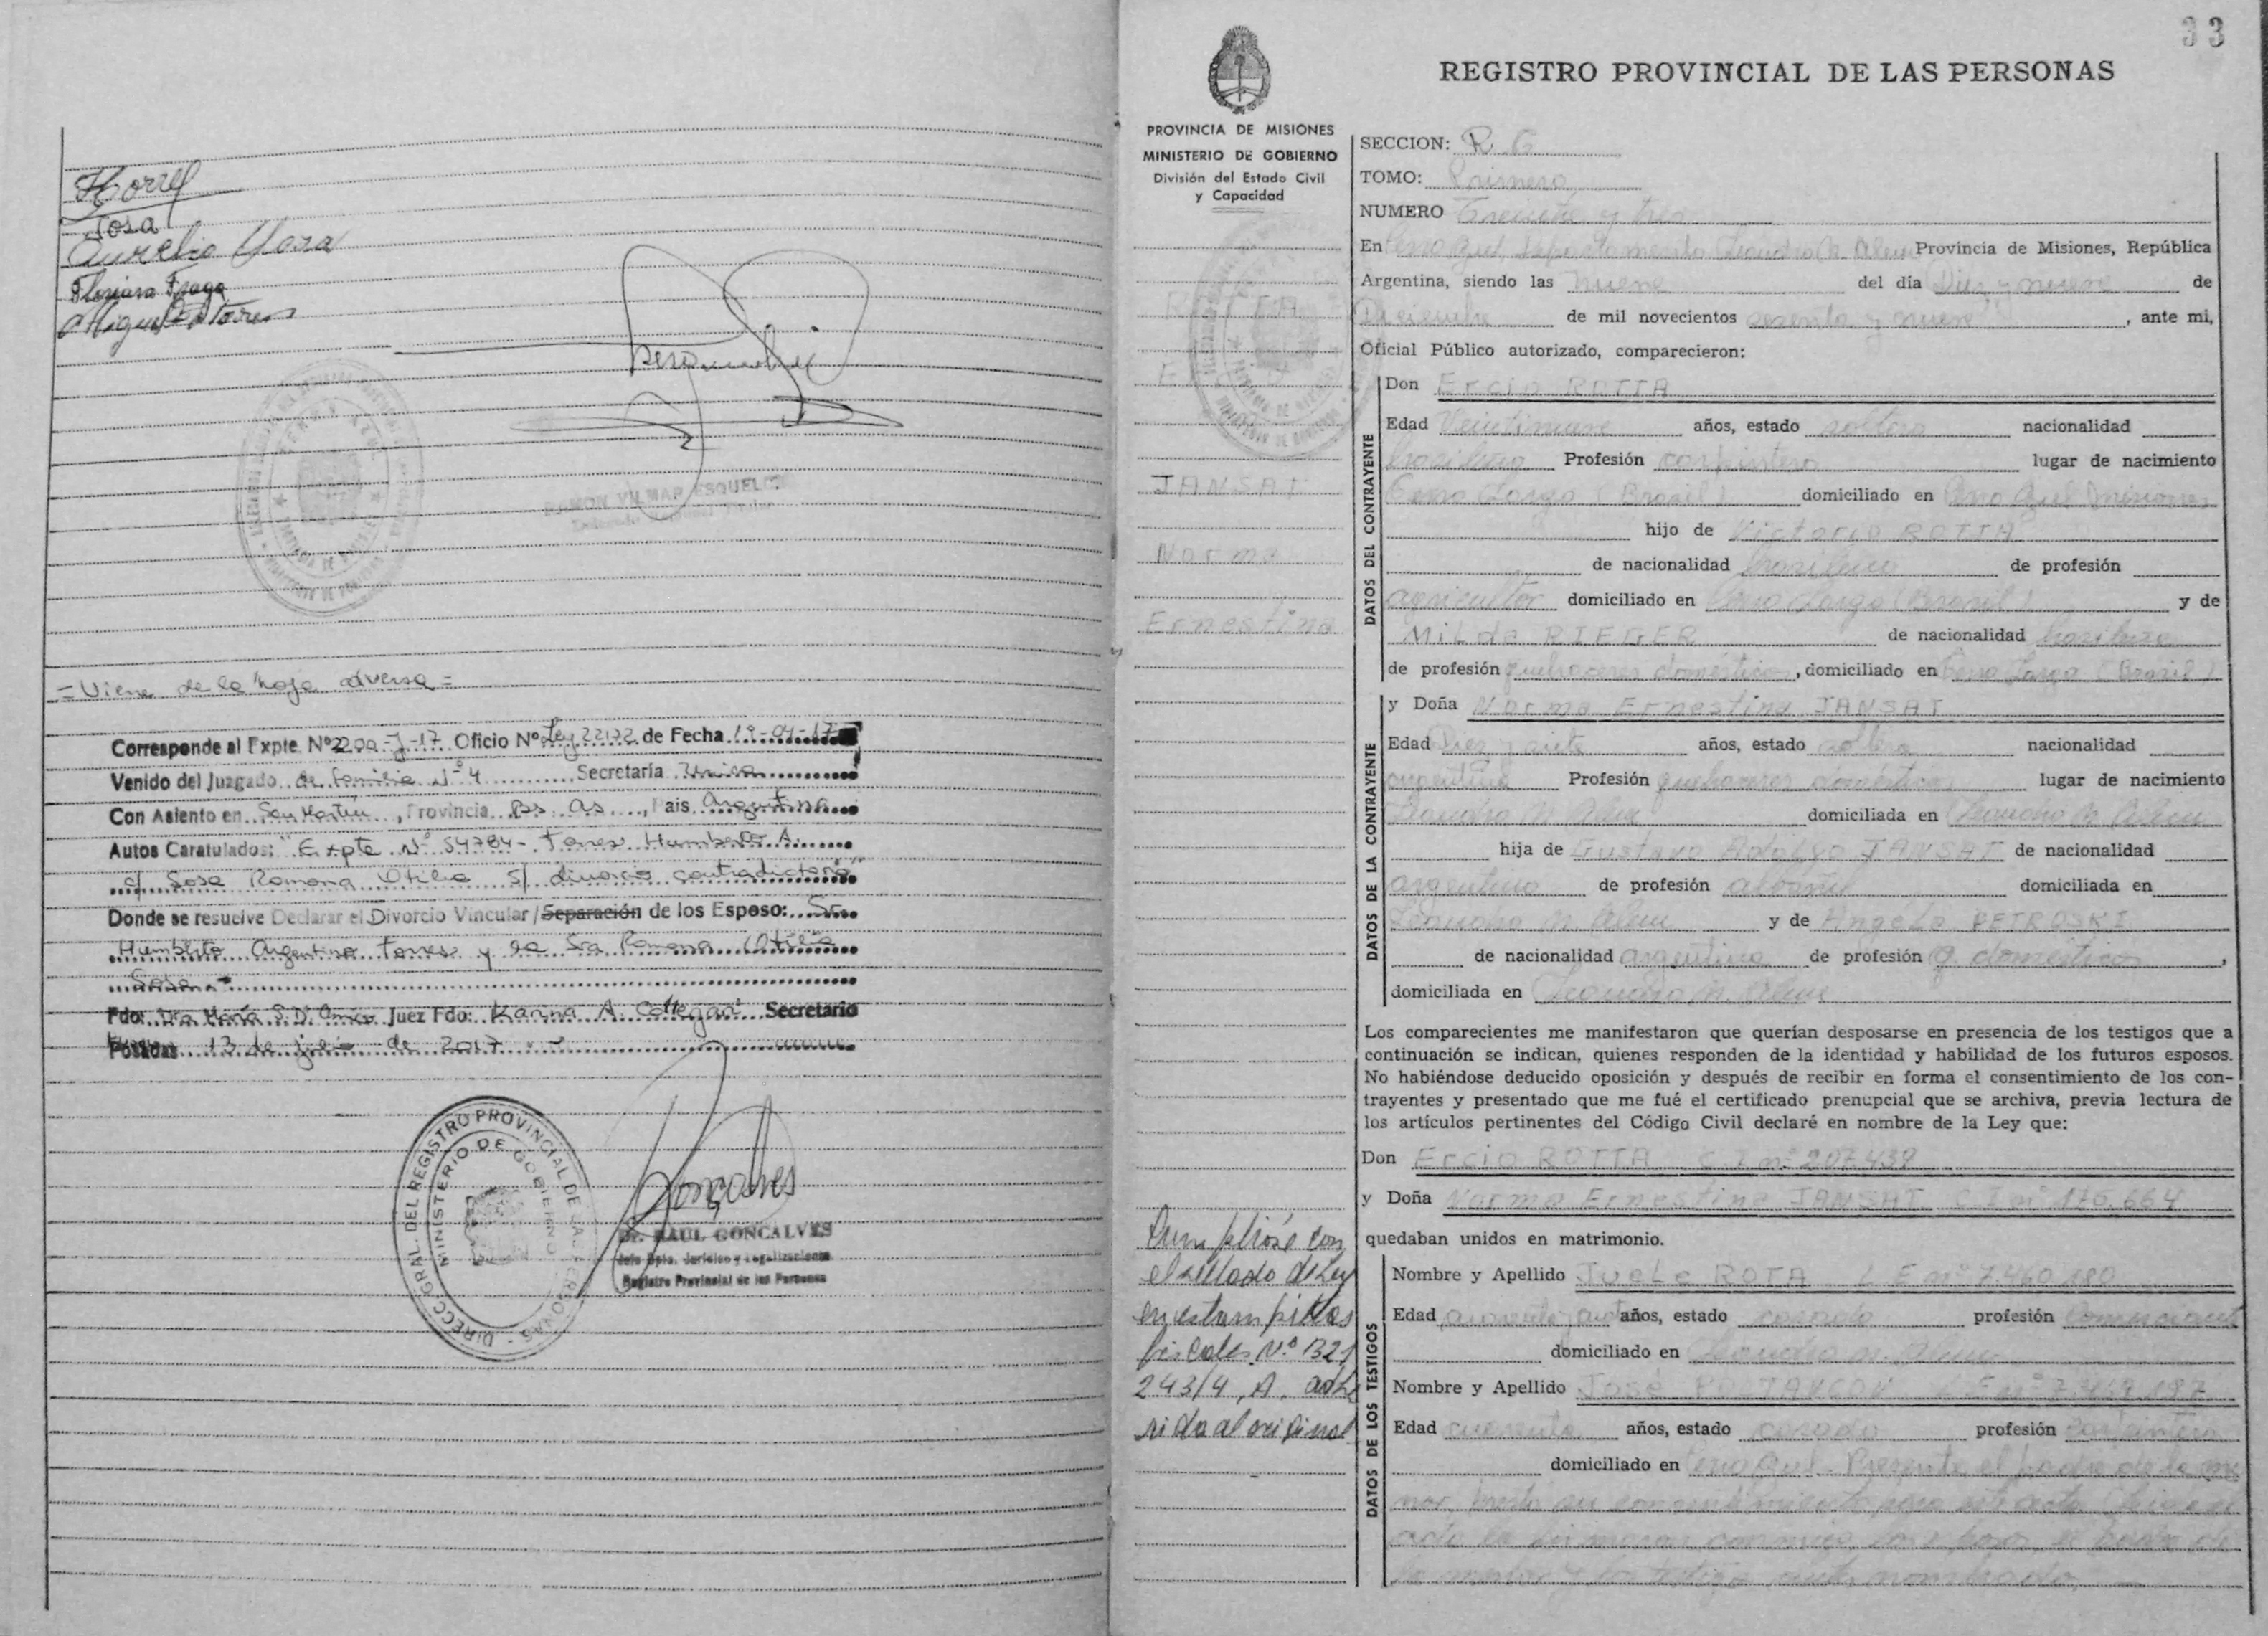 Sosa
Aurelio Sosa
Floriana Fraga
Miguel
RAMON VILMAR ESQUEL
= Viene de la hoja adversa =
Corresponde al Expte. Nº 2200-J-17 Oficio Nº Ley 22172 de Fecha 19-04-17
Venido del Juzgado de familia Nº 4 Secretaría Unica
Con Asiento en San Martín, Provincia Bs. as., Pais Argentina
Autos Caratulados: "Expte Nº 54784- Torres Humberto A.
c/ Sosa Ramona Otilia s/ divorcio contradictorio"
Donde se resuelve Declarar el Divorcio Vincular/Separación de los Esposo: Sr.
Humberto Argentino Torres y la Sra Ramona Otilia
Sosa -
Fdo: Dra María S. D'Amico Juez Fdo: Karina A. Secretario
Posadas 13 de julio de 2017
DIRECC. GRAL. DEL REGISTRO PROVINCIAL DE LAS PERSONAS
MINISTERIO DE GOBIERNO
Goncalves
Dr. RAUL GONCALVES
Jefe Dpto. Jurídico y Legalizaciones
Registro Provincial de las Personas
33
REGISTRO PROVINCIAL DE LAS PERSONAS
PROVINCIA DE MISIONES
MINISTERIO DE GOBIERNO
División del Estado Civil
y Capacidad
ROTTA
JANSAT
Norma
Ernestina
Cumplióse con
el sellado de Ley
en estampillas
fiscales Nº 1321
243/4, A. adhe
rida al original
SECCION: R G
TOMO: Primero
NUMERO Treinta y tres
En Cerro Azul Departamento Leandro N. Alem Provincia de Misiones, República
Argentina, siendo las nueve del día Diez y nueve de
Diciembre de mil novecientos sesenta y nueve, ante mi,
Oficial Público autorizado, comparecieron:
DATOS DEL CONTRAYENTE
Don Ercio ROTTA
Edad Veintinueve años, estado soltero nacionalidad
brasileño Profesión carpintero lugar de nacimiento
Cerro Largo (Brasil) domiciliado en Cerro Azul Misiones
hijo de Victorio ROTTA
de nacionalidad brasilera de profesión
agricultor domiciliado en Cerro Largo (Brasil) y de
Milda RIEGER de nacionalidad brasilera
de profesión quehaceres domésticos, domiciliado en Cerro Largo (Brasil)
DATOS DE LA CONTRAYENTE
y Doña Norma Ernestina JANSAT
Edad Diez y siete años, estado soltera nacionalidad
argentina Profesión quehaceres domésticos lugar de nacimiento
Leandro N. Alem domiciliada en Leandro N. Alem
hija de Gustavo Adolfo JANSAT de nacionalidad
argentino de profesión albañil domiciliada en
Leandro N. Alem y de Angela PETROSKI
de nacionalidad argentina de profesión q. domésticos,
domiciliada en Leandro N. Alem
Los comparecientes me manifestaron que querían desposarse en presencia de los testigos que a
continuación se indican, quienes responden de la identidad y habilidad de los futuros esposos.
No habiéndose deducido oposición y después de recibir en forma el consentimiento de los con-
trayentes y presentado que me fué el certificado prenupcial que se archiva, previa lectura de
los artículos pertinentes del Código Civil declaré en nombre de la Ley que:
Don Ercio ROTTA C I nº 207.439
y Doña Norma Ernestina JANSAT C I nº 176.664
quedaban unidos en matrimonio.
DATOS DE LOS TESTIGOS
Nombre y Apellido ROTA L E nº 7.480.180
Edad años, estado casado profesión Comerciante
domiciliado en Leandro N. Alem
Nombre y Apellido José
Edad cuarenta años, estado casado profesión carpintero
domiciliado en Cerro Azul. Presente el padre de la me
nor, presta su consentimiento para este acto.
acta la firmaron conmigo los esposos, el padre de
la menor y los testigos antes nombrados.